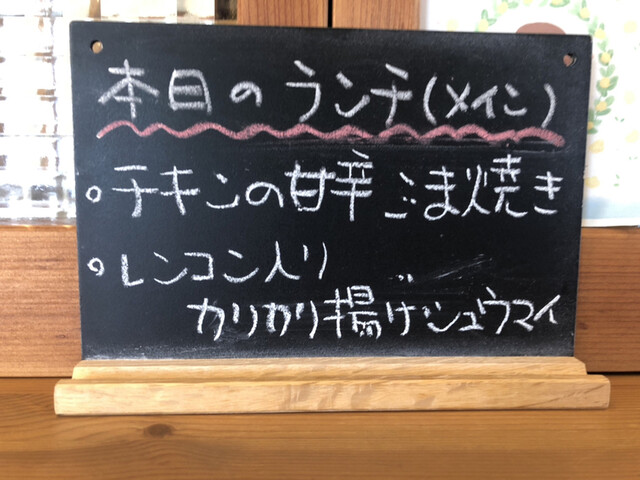 本日のランチ(メイン)
。チキンの甘辛ごま焼き
。レンコン入り
カリカリ揚げシュウマイ